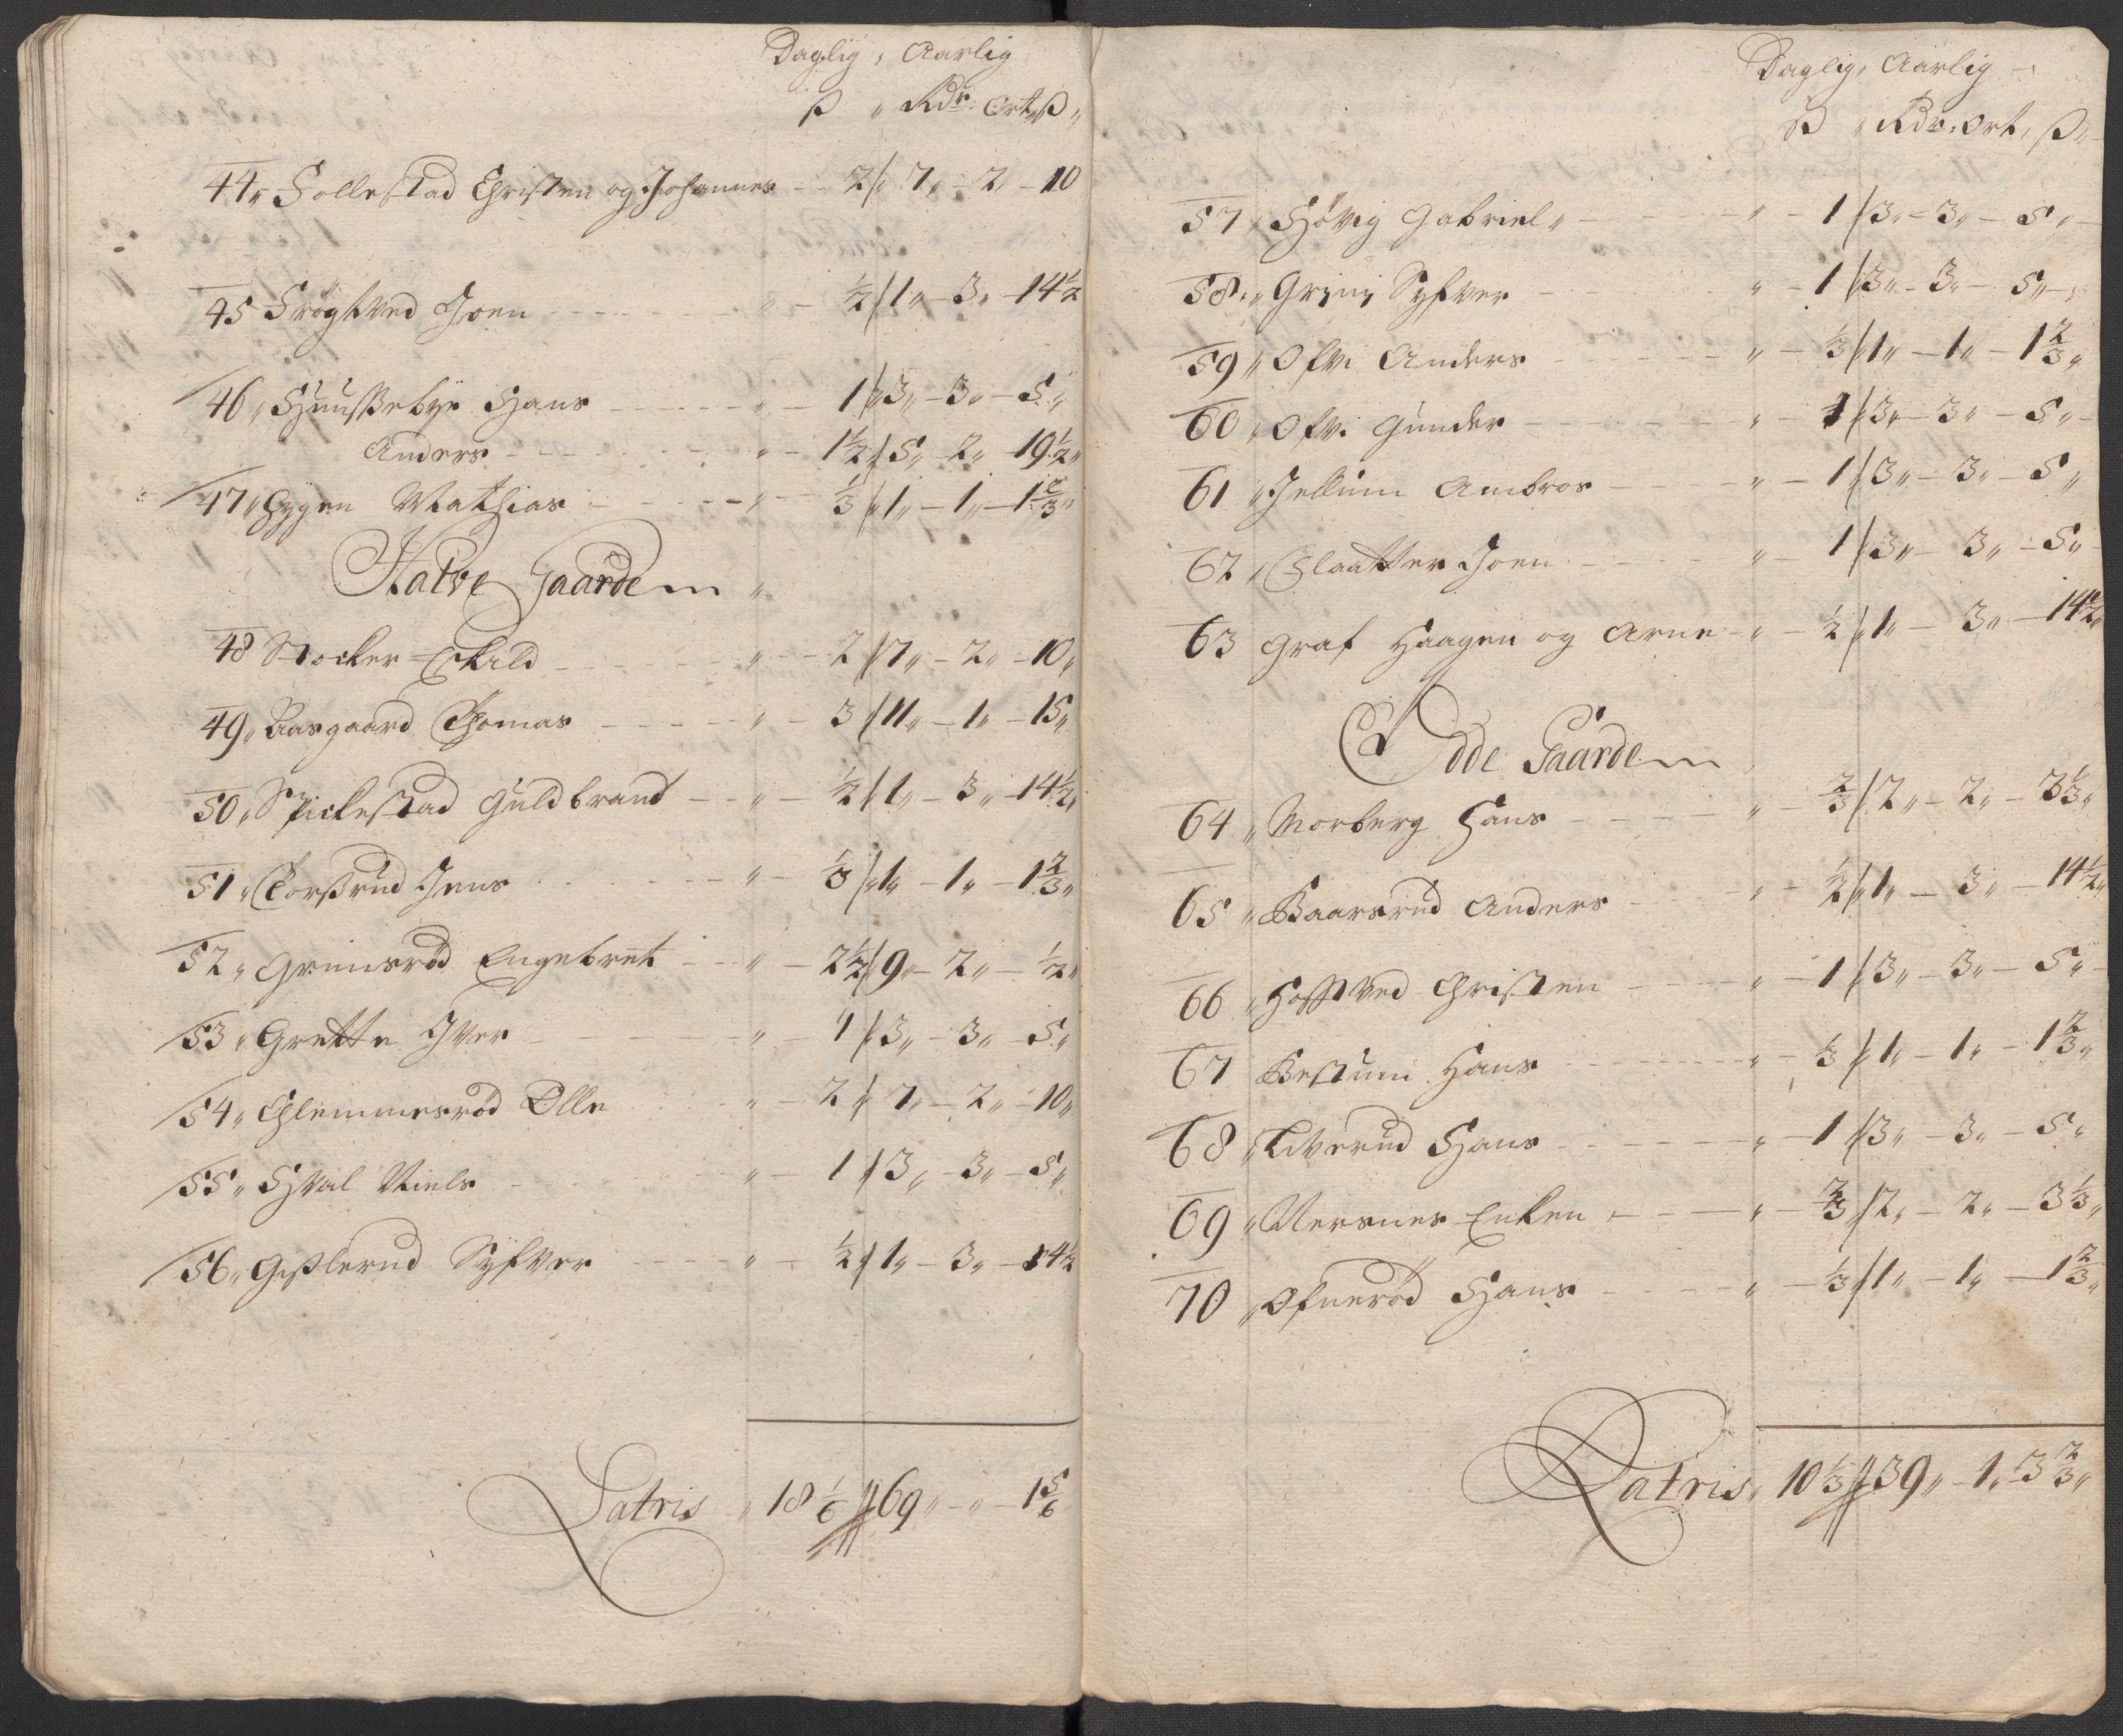 Daglig, Aarlig
ß " Rdr. Ort, ß "
44 " Follestad Christen og Johannes - 2 // 7 " - 2 " - 10
45 Frøgtved Joen - " - ½ // 1 " - 3 " - 14½
46 " Huusßebye Hans - " - 1 // 3 " - 3 " - 5 "
Anders - " - 1½ // 5 " - 2 " - 19½ "
47 " Hygen Mathias - " - ⅓ // 1 " - 1 " - 1⅔ "
Halve Gaarder "
48 Stocker Eskild - " - 2 // 7 " - 2 " - 10 "
49 " Aasgaard Thomas - " - 3 // 11 " - 1 " - 15 "
50 " Spickestad Guldbrand - " - ½ // 1 " - 3 " - 14½ "
51 " Torßrud Jens - " - ⅓ // 1 " - 1 " - 1⅔ "
52 " Grimsrød Engebret - " - 2½ // 9 " - 2 " - ½ "
53 " Grette Iver - " - 1 // 3 " - 3 " - 5 "
54 " Clemmesrød Olle " - 2 // 7 " - 2 " - 10 "
55 " Hval Niels - " - 1 // 3 " - 3 " - 5 "
56 " Gißlerud Syfver - " - ½ // 1 " - 3 " - 14½
Latris " 18⅙ // 69 " - " - 1⅚
Daglig, Aarlig
ß " Rdr. Ort, ß "
57 " Høvig Gabriel " - " - 1 // 3 " - 3 " - 5 "
58 " Grini Syfver - " - 1 // 3 " - 3 " - 5 "
59 " Ofvi Anders - " - ⅓ // 1 " - 1 " - 1⅔ "
60 " Ofvi Gunder - " - 1 // 3 " - 3 " - 5 "
61 " Jellum Ambros - " - 1 // 3 " - 3 " - 5 "
62 " Claatter Joen - " - 1 // 3 " - 3 " - 5 "
63 Graf Haagen og Arne - " - ½ // 1 " - 3 " - 14½ "
Ødde Gaarder
64 " Morberg Hans - " - ⅔ // 2 " - 2 " - 3⅓ "
65 " Baarsrud Anders - " - ½ // 1 " - 3 " - 14½ "
66 " Hofstved Christen - " - 1 // 3 " - 3 " - 5 "
67 Bestum Hans - " - ⅓ // 1 " - 1 " - 1⅔ "
68 " Liverud Hans - " - 1 // 3 " - 3 " - 5 "
69 " Nersnes Enken - " - ⅔ // 2 " - 2 " - 3⅓ "
70 " Ofnerød Hans - " - ⅓ // 1 " - 1 " - 1⅔ "
Latris " 10⅓ // 39 " - 1 " 3⅔ "